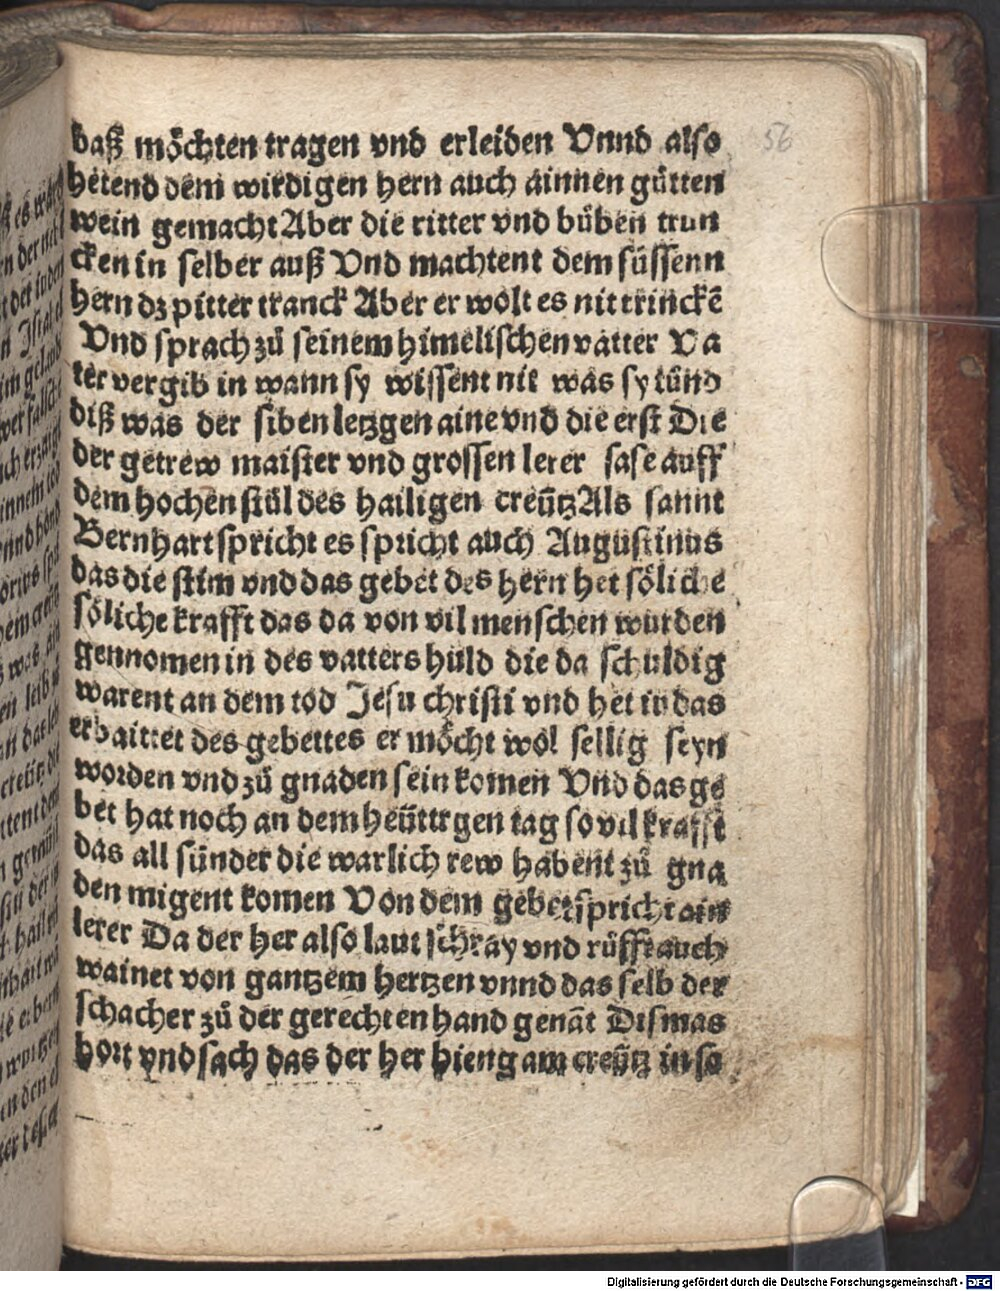 baß möchten tragen vnd erleiden Vnnd also
hetend dem wirdigen hern auch ainnen gůtten
wein gemacht Aber die ritter vnd bůben trun
cken in selber auß Vnd machtent dem süssenn
hern dz pitter tranck Aber er wolt es nit trinckē
Vnd sprach zů seinem himelischen vatter Va
ter vergib in wann sy wissent nit was sy tůnd
diß was der siben letzgen aine vnd die erst Die
der getrew maister vnd grossen lerer sase auff
dem hochen stůl des hailigen creütz Als sannt
Bernhart spricht es spricht auch Augustinus
das die stim vnd das gebet des hern het söliche
söliche krafft das da von vil menschen wurden
gennomen in des vatters huld die da schuldig
warent an dem tod Jesu christi vnd het iudas
erbaittet des gebettes er möcht wol sellig seyn
worden vnd zů gnaden sein komen Vnd das ge
bet hat noch an dem heüttrgen tag so vil krafft
das all sünder die warlich rew habent zů gna
den migent komen Von dem gebet spricht ain
lerer Da der her also laut schray vnd růfft auch
wainet von gantzem hertzen vnnd das selb der
schacher zů der gerechten hand genāt Dismas
hort vnd sach das der her hieng am creütz in so
56
Digitalisierung gefördert durch die Deutsche Forschungsgemeinschaft - DFG